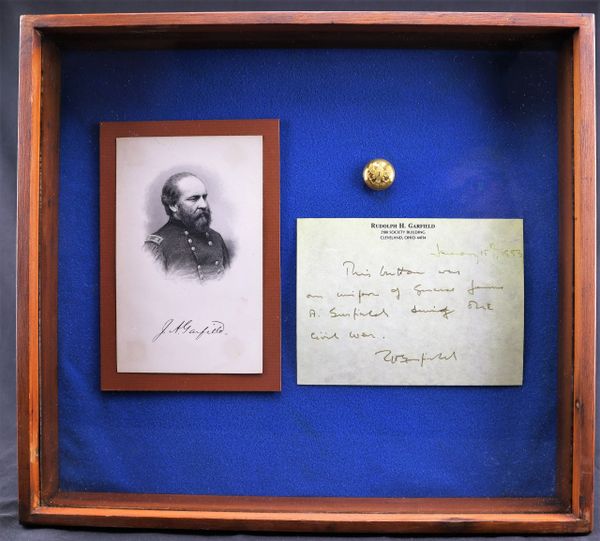 J. A. Garfield.
RUDOLPH H. GARFIELD
SOCIETY BUILDING
CLEVELAND, OHIO 44114
January 15th,
This button was
on uniform of General James
A. Garfield during the
Civil War.
RHGarfield